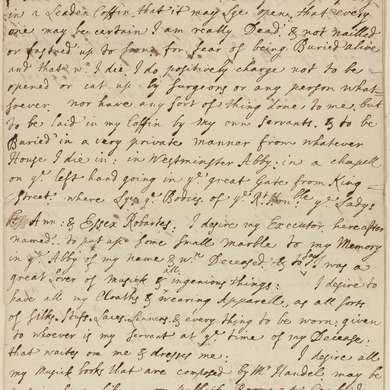 in a Leaden Coffin that it may Lye open, that every
one may be certain I am really Dead, & not nailed
or fasted up to soon, for fear of being Buried alive
and that wn. I die, I do positively charge not to be
opened or cut up by Surgeons or any person what-
soever. nor have any sort of thing done to me, but
to be laid in my Coffin by my own Servants. & to be
Buried in a very private manner from whatever
House I die in: in Westminster Abby: in a chapell
on ye. left hand going in ye. great Gate from King
Street. where Lye ye. Bodies of ye. Rt. Honble. ye. Ladys
Ann: & Essex Robartes: I desire my Executor hereafter
named. to put up some small marble to my Memory
in ye. Abby of my name & wn. Deceased, & I was a
great Lover of Musick & all ingenious things: I desire to
have all my Cloaths & wearing Apparell, as all sorts
of Silks, Stuffs, Laces, Linnens, & every thing to be worn, given
to whoever is my Servant at ye. time of my Decease:
that waites on me & dresses me: I desire all
my Musick books that are composed by Mr. Handel may be